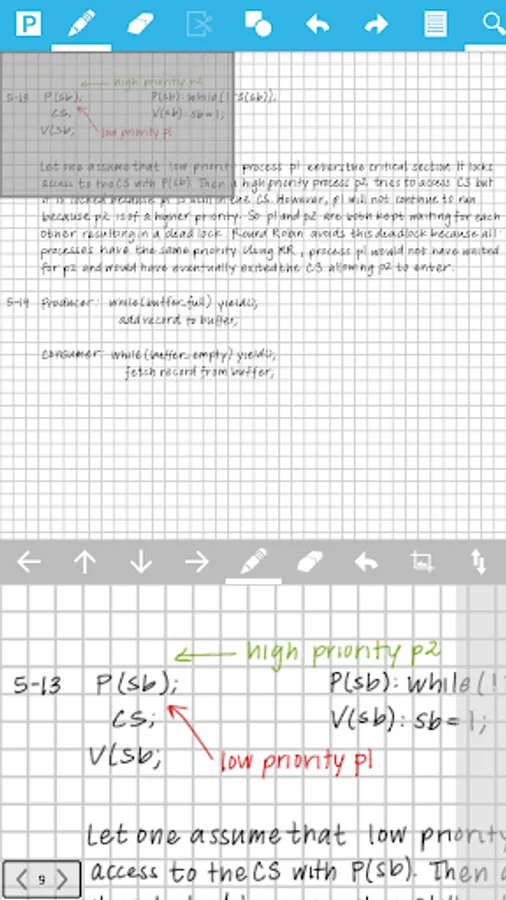 P
high priority p2
5-13 P(sb); P(sb): while(!TS(sb));
CS; V(sb): sb=1;
V(sb; low priority p1
Let one assume that low priority process p1 enters the critical section. It locks
access to the CS with P(sb). Then a high priority process p2 tries to access CS but
it is locked because p1 is still in the CS. However, p1 will not continue to run
because p2 is of a higher priority. So p1 and p2 are both kept waiting for each
other resulting in a dead lock. Round Robin avoids this deadlock because all
processes have the same priority. Using RR, process p1 would not have waited
for p2 and would have eventually exited the CS allowing p2 to enter.
5-14 Producer: while(buffer_full) yield();
add record to buffer;
Consumer: while(buffer_empty) yield();
fetch record from buffer;
high priority p2
5-13 P(sb); P(sb): while(!
CS; V(sb): sb=1;
V(sb;
low priority p1
Let one assume that low priority
access to the CS with P(sb). Then a
9